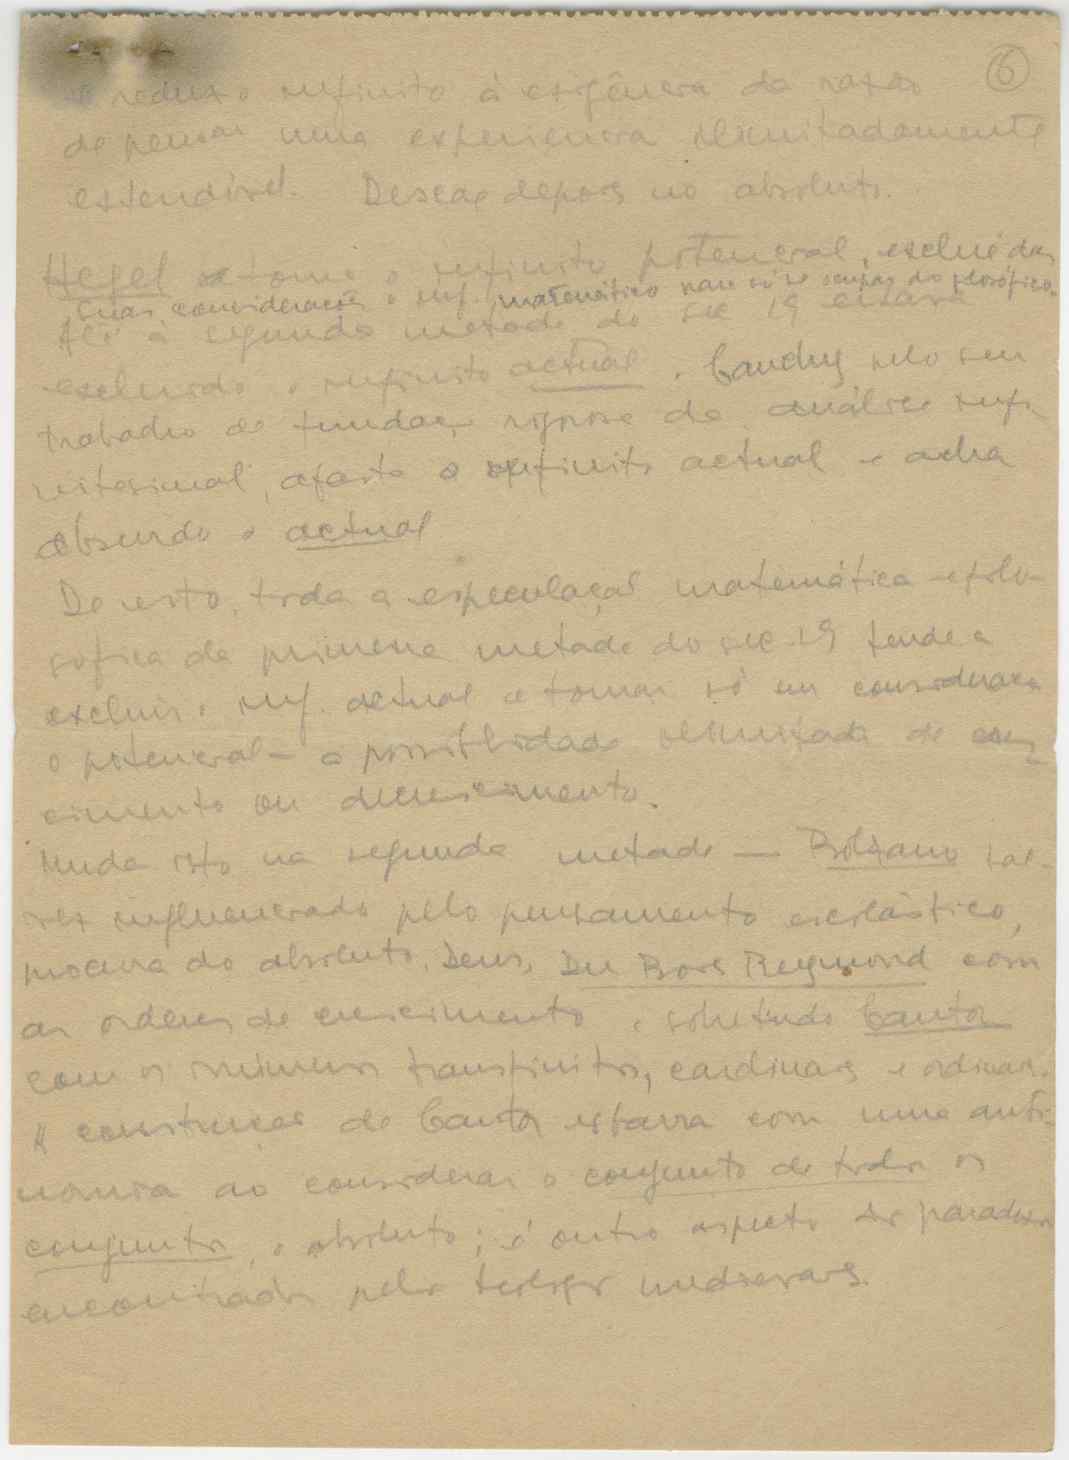 6
e reduz o infinito à exigência da razão
de pensar uma experiência ilimitadamente
extendível. depois no absoluto.
Hegel toma o infinito potencial, exclue das
suas considerações o inf. matemático para só se ocupar do filosófico.
Até à segunda metade do sec 19 estava
excluido o infinito actual. Cauchy pelo seu
trabalho de fundação rigorosa da análise infi-
nitesimal, afasta o infinito actual e acha
absurdo o actual
De resto, toda a especulação matemática e filo-
sofica da primeira metade do sec. 19 tende a
excluir o inf. actual e tomar só em consideração
o potencial – a possibilidade ilimitada de cres-
cimento ou decrescimento.
Muda isto na segunda metade — Bolzano tal-
vez influenciado pelo pensamento escolástico,
procura do absoluto, Deus, Du Bois Reymond com
as ordens de crescimento e sobretudo Cantor
com os números transfinitos, cardinais e ordinais.
A construção de Cantor esbarra com uma anti-
nomia ao considerar o conjunto de todos os
conjuntos, o absoluto; é outro aspecto dos paradoxos
encontrados pelos teologos medievais.